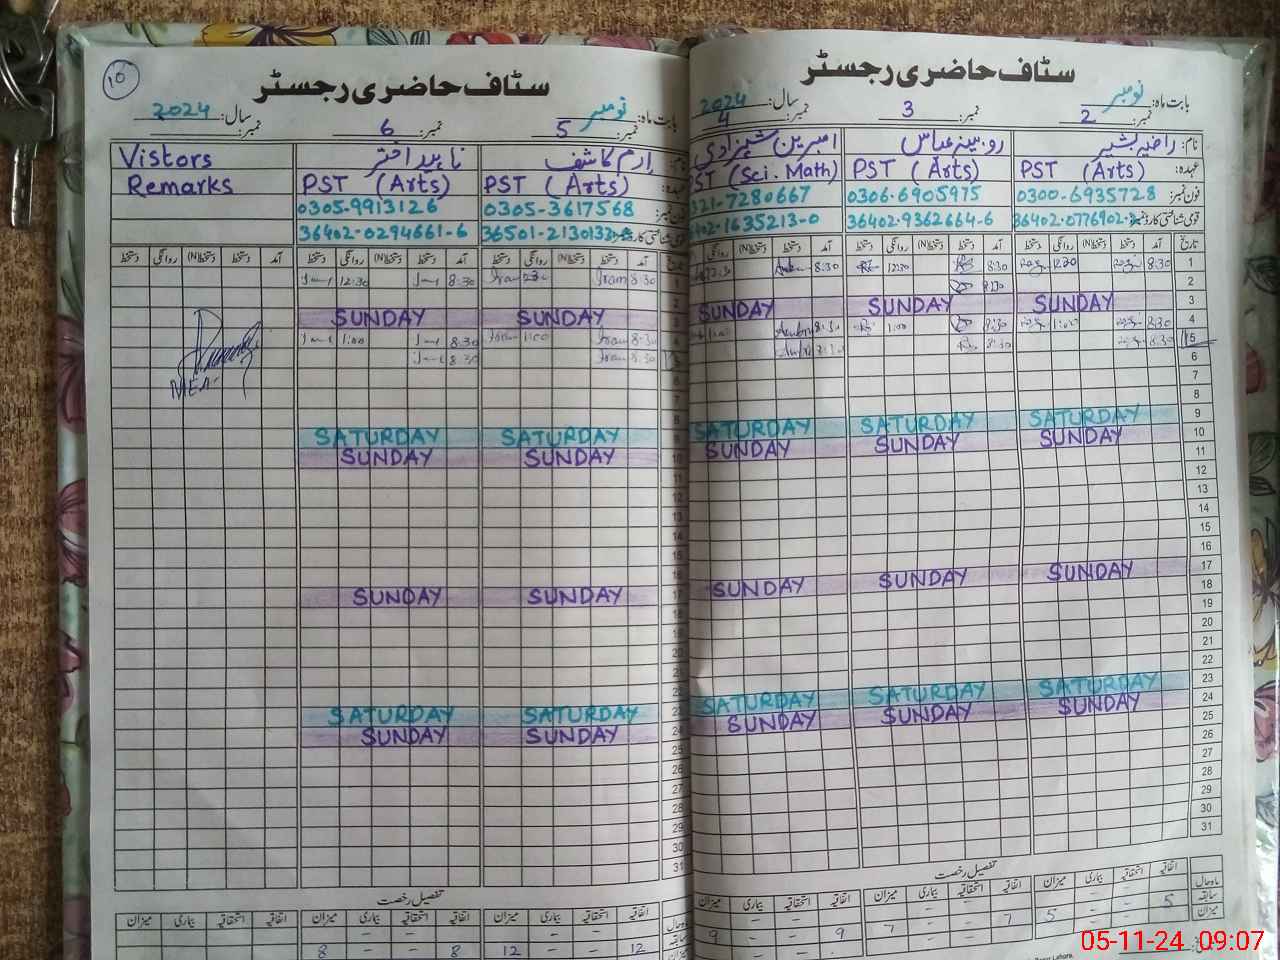 10
سٹاف حاضری رجسٹر
بابت ماہ: نومبر سال: 2024
نمبر: 5 نمبر: 6 نمبر:
نام: ارم کاشف ناہید اختر Vistors
عہدہ: PST (Arts) PST (Arts) Remarks
فون نمبر: 0305-3617568 0305-9913126
36402-0294661-6
آمد دستخط دستخط(N) روانگی دستخط
1 8:30 Iram 8:30 12:30
2
3 SUNDAY SUNDAY
4 8:30 Iram 1:00 8:30 1:00
5 8:30 Iram 8:30
MEA
9 SATURDAY SATURDAY
10 SUNDAY SUNDAY
11
12
13
14
15
16
17 SUNDAY SUNDAY
18
19
20
21
22
23 SATURDAY SATURDAY
24 SUNDAY SUNDAY
25
26
27
28
29
30
31
تفصیل رخصت
اتفاقیہ استحقاقیہ بیماری میزان
12 - - 12 8 - - 8
سٹاف حاضری رجسٹر
بابت ماہ: نومبر سال: 2024
نمبر: 2 نمبر: 3 4
نام: راضیہ بشیر روبینہ عباس امبرین شہزادی
عہدہ: PST (Arts) PST (Arts) PST (Sci. Math)
فون نمبر: 0300-6935728 0306-6905975 321-7280667
قومی شناختی کارڈ نمبر: 36402-0776902- 36402-9362664-6 402-1635213-0
تاریخ آمد دستخط دستخط(N) روانگی دستخط
1 8:30 12:30 8:30 12:30 8:30 12:30
2 8:30
3 SUNDAY SUNDAY SUNDAY
4 8:30 1:00 8:30 1:00 8:30 1:00
5 8:30 8:30 8:30
6
7
8
9 SATURDAY SATURDAY SATURDAY
10 SUNDAY SUNDAY SUNDAY
11
12
13
14
15
16
17 SUNDAY SUNDAY SUNDAY
18
19
20
21
22
23 SATURDAY SATURDAY SATURDAY
24 SUNDAY SUNDAY SUNDAY
25
26
27
28
29
30
31
تفصیل رخصت
اتفاقیہ استحقاقیہ بیماری میزان
ماہ حال
سابقہ 5 - - 5 7 - - 7 9 - - 9
میزان
05-11-24 09:07